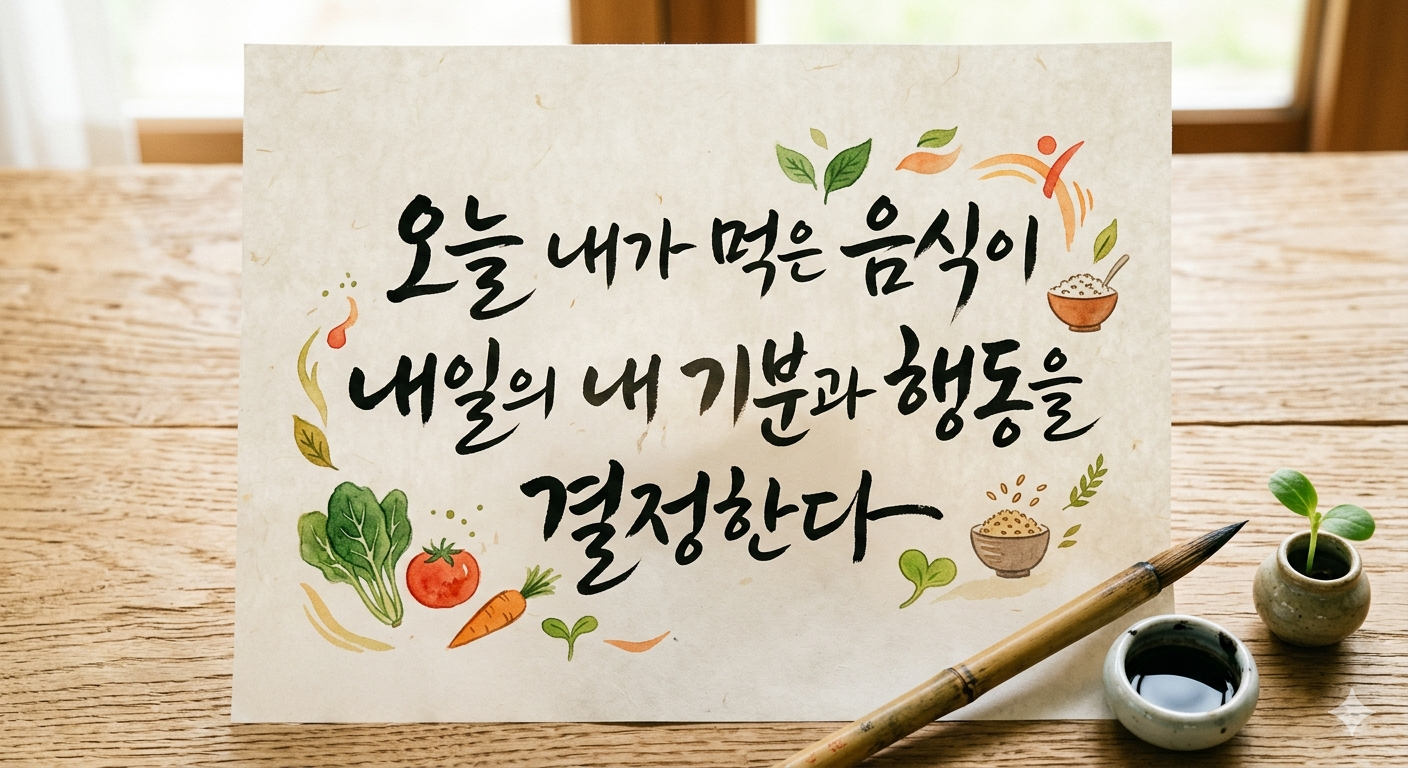 오늘 내가 먹은 음식이
내일의 내 기분과 행동을
결정한다